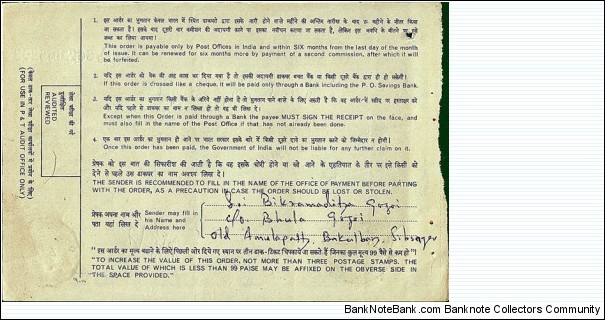 1. इस आर्डर का भुगतान केवल भारत में स्थित डाकघरों द्वारा इसके जारी होने वाले महीने की अन्तिम तारीख के बाद छः महीने के भीतर किया
This order is payable only by Post Offices in India and within SIX months from the last day of the month
of issue. It can be renewed for six months more by payment of a second commission, after which it will
be forfeited.
2. यदि इस आर्डर को चेक की तरह क्रास कर दिया गया है तो इसकी अदायगी डाकघर बचत बैंक या किसी दूसरे बैंक द्वारा ही हो सकेगी।
If this order is crossed like a cheque, it will be paid only through a Bank including the P. O. Savings Bank.
3.
Except when this Order is paid through a Bank the payee MUST SIGN THE RECEIPT on the face, and
must also fill in the name of the Post Office if that has not already been done.
4. एक बार इस आर्डर का भुगतान हो जाने पर भारत सरकार इसके बारे में किसी दूसरे दावे का भुगतान करने की जिम्मेदार न होगी।
Once this order has been paid, the Government of India will not be liable for any further claim on it.
प्रेषक को इस बात की सिफारिश की जाती है कि वह इसके चोरी होने या खो जाने के एहतियात के तौर पर इसे किसी को
देने से पहले उस डाकघर का नाम अवश्य लिख दे।
THE SENDER IS RECOMMENDED TO FILL IN THE NAME OF THE OFFICE OF PAYMENT BEFORE PARTING
WITH THE ORDER, AS A PRECAUTION IN CASE THE ORDER SHOULD BE LOST OR STOLEN.
प्रेषक अपना नाम और
पता यहां लिख दे
Sender may fill in
his Name and
Address here
Sri Bikramaditya Gogoi
C/o. Bhula Gogoi
Old Amulapatty, Bakulbari, Sibsagar
"इस आर्डर का मूल्य बढ़ाने के लिए पिछली ओर दिये गए स्थान पर तीन डाक-टिकट चिपकाये जा सकते हैं जिनका कुल मूल्य 99 पैसे से कम हो"
"TO INCREASE THE VALUE OF THIS ORDER, NOT MORE THAN THREE POSTAGE STAMPS. THE
TOTAL VALUE OF WHICH IS LESS THAN 99 PAISE MAY BE AFFIXED ON THE OBVERSE SIDE IN
THE SPACE PROVIDED."
AUDITED
REVIEWED
(FOR USE IN P & T AUDIT OFFICE ONLY)
BankNoteBank.com - Banknote Collectors Community